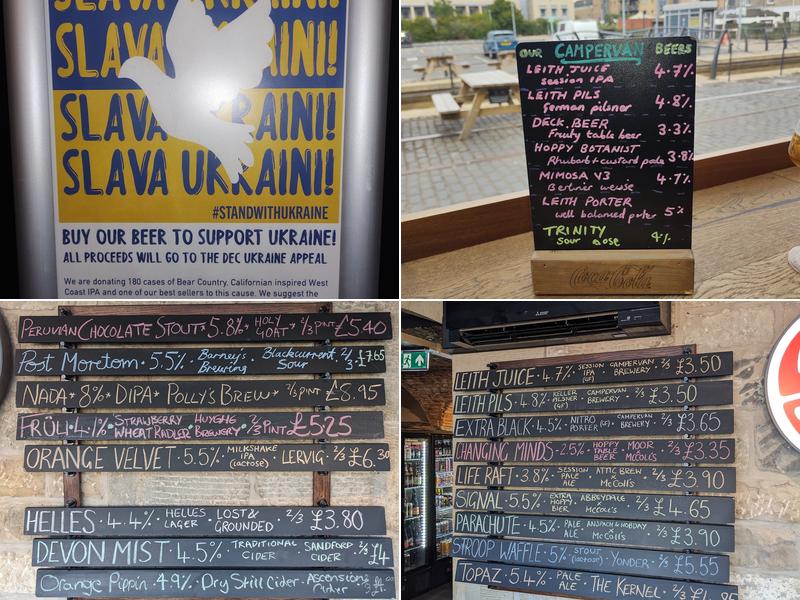 SLAVA UKRAINI!
SLAVA INI!
SLAVA RAINI!
SLAVA UKRAINI!
#STANDWITHUKRAINE
BUY OUR BEER TO SUPPORT UKRAINE!
ALL PROCEEDS WILL GO TO THE DEC UKRAINE APPEAL
We are donating 180 cases of Bear Country, Californian inspired West
Coast IPA and one of our best sellers to this cause. We suggest the
OUR CAMPERVAN BEERS
LEITH JUICE 4.7%
session IPA
LEITH PILS 4.8%
german pilsner
DECK BEER 3.3%
Fruity table beer
HOPPY BOTANIST
Rhubarb + custard pale 3.8%
MIMOSA V3 4.7%
Berliner weisse
LEITH PORTER
well balanced porter 5%
TRINITY 4%
sour gose
PERUVIAN CHOCOLATE STOUT 5.8% HOLY GOAT 2/3 PINT £5.40
Post Moretom 5.5% Barney's Brewing Blackcurrant Sour 2/3 £7.65
NADA 8% DIPA POLLY'S BREW 2/3 PINT £8.95
FRÜLI 4.1% STRAWBERRY WHEAT RADLER HUYGHE BREWERY 2/3 PINT £5.25
ORANGE VELVET 5.5% MILKSHAKE IPA (lactose) LERVIG 2/3 £6.30
HELLES 4.4% HELLES LAGER LOST & GROUNDED 2/3 £3.80
DEVON MIST 4.5% TRADITIONAL CIDER SANDFORD CIDER 2/3 £4
Orange Pippin 4.9% Dry Still Cider Ascension Cider
LEITH JUICE 4.7% SESSION IPA (GF) CAMPERVAN BREWERY 2/3 £3.50
LEITH PILS 4.8% KELLER PILSNER (GF) CAMPERVAN BREWERY 2/3 £3.50
EXTRA BLACK 4.5% NITRO PORTER (GF) CAMPERVAN BREWERY 2/3 £3.65
CHANGING MINDS 2.5% HOPPY TABLE BEER MOOR x McColl's 2/3 £3.35
LIFE RAFT 3.8% SESSION PALE ALE ATTIC BREW x McColl's 2/3 £3.90
SIGNAL 5.5% EXTRA HOPPY BIER ABBEYDALE x McColl's 2/3 £4.65
PARACHUTE 4.5% PALE ALE ANSPACH & HOBDAY x McColl's 2/3 £3.90
STROOP WAFFLE 5% STOUT (lactose) YONDER 2/3 £5.55
TOPAZ 5.4% PALE ALE THE KERNEL